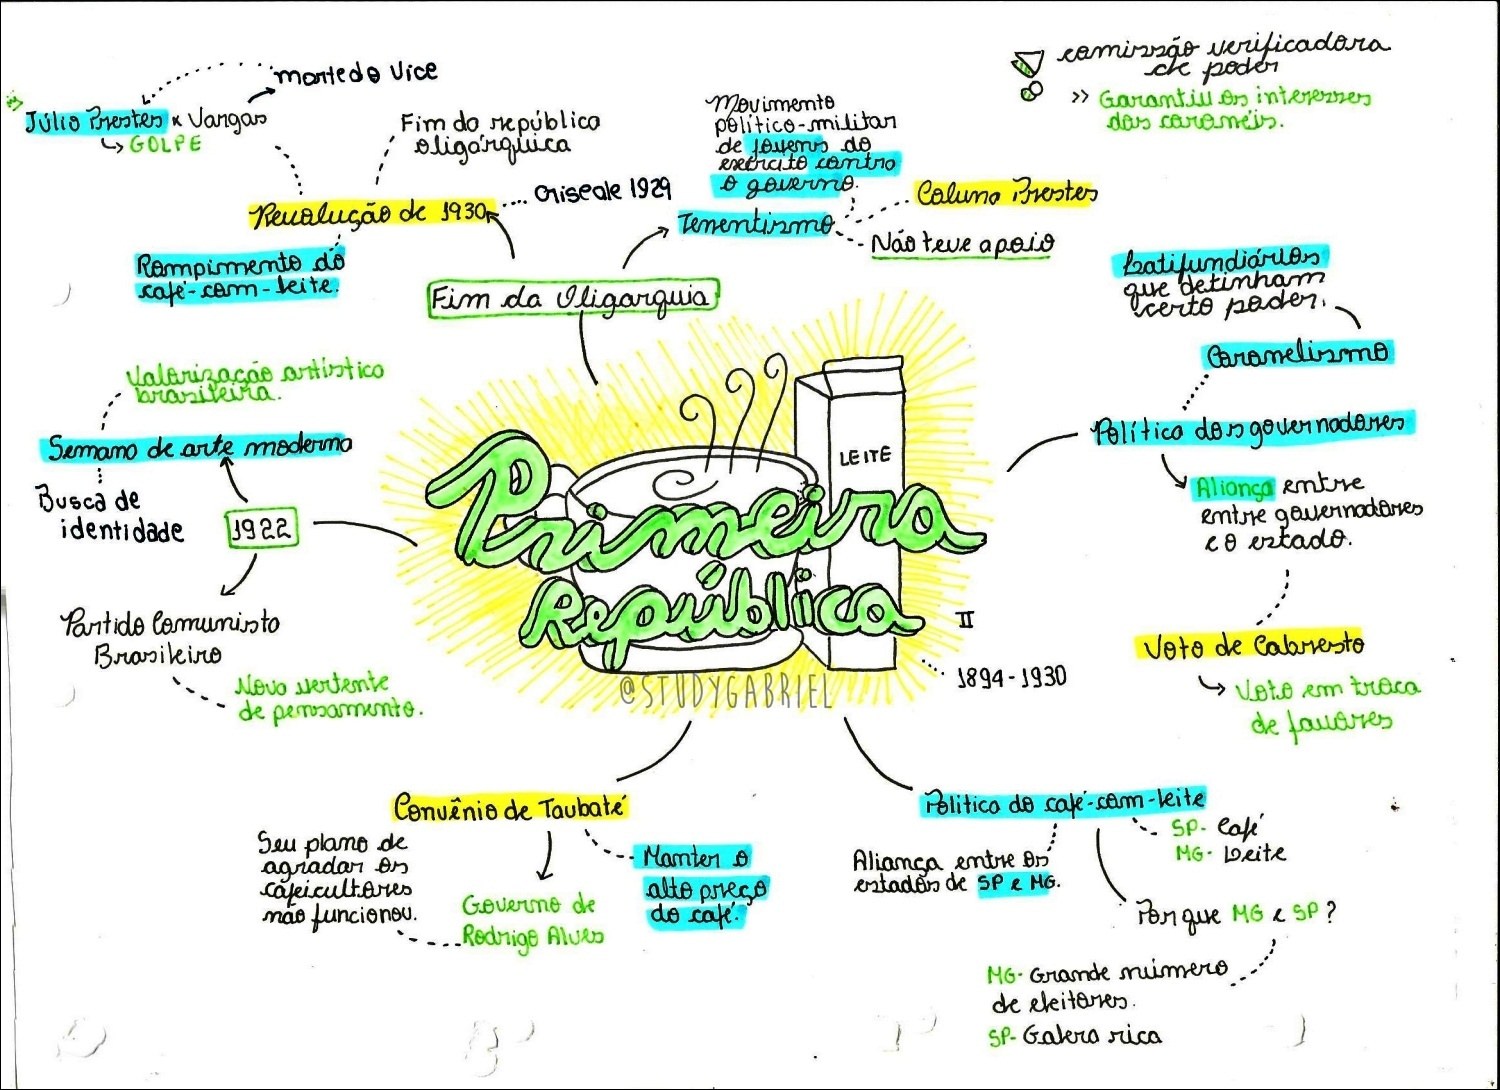 morte do vice
Júlio Prestes x Vargas
GOLPE
Fim da república
oligárquica
crise de 1929
Revolução de 1930
Rompimento do
café-com-leite.
Fim da Oligarquia
Movimento
político-militar
de jovens do
exército contra
o governo.
Tenentismo
Coluna Prestes
Não teve apoio
comissão verificadora
de poder
>> Garantiu os interesses
dos coronéis.
Latifundiários
que detinham
certo poder.
Coronelismo
Política dos governadores
Aliança entre
entre governadores
e o estado.
Voto de Cabresto
Voto em troca
de favores
Valorização artístico
brasileira.
Semana de arte moderna
Busca de
identidade
1922
Partido Comunista
Brasileiro
Nova vertente
de pensamento.
LEITE
Primeira
República
II
1894-1930
@STUDYGABRIEL
Convênio de Taubaté
Seu plano de
agradar os
cafeicultores
não funcionou.
Governo de
Rodrigo Alves
Manter o
alto preço
do café.
Política do café-com-leite
SP- Café
MG- Leite
Aliança entre os
estados de SP e MG.
Por que MG e SP?
MG- Grande número
de eleitores.
SP- Galera rica